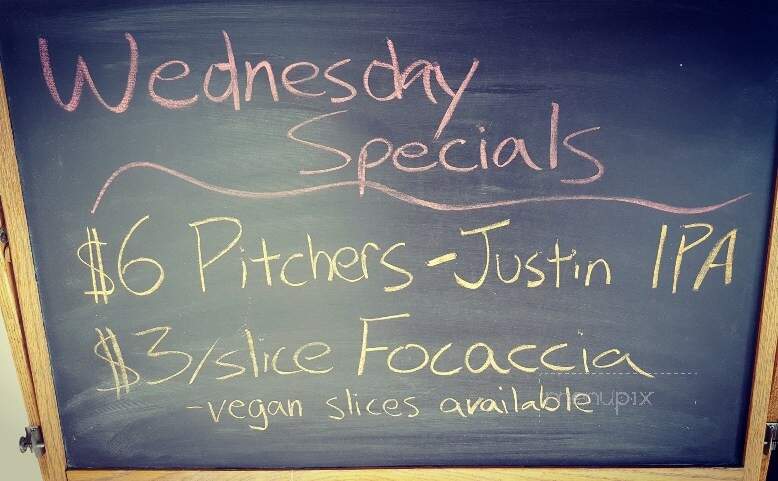 Wednesday
Specials
$6 Pitchers - Justin IPA
$3/slice Focaccia
- vegan slices available
menupix